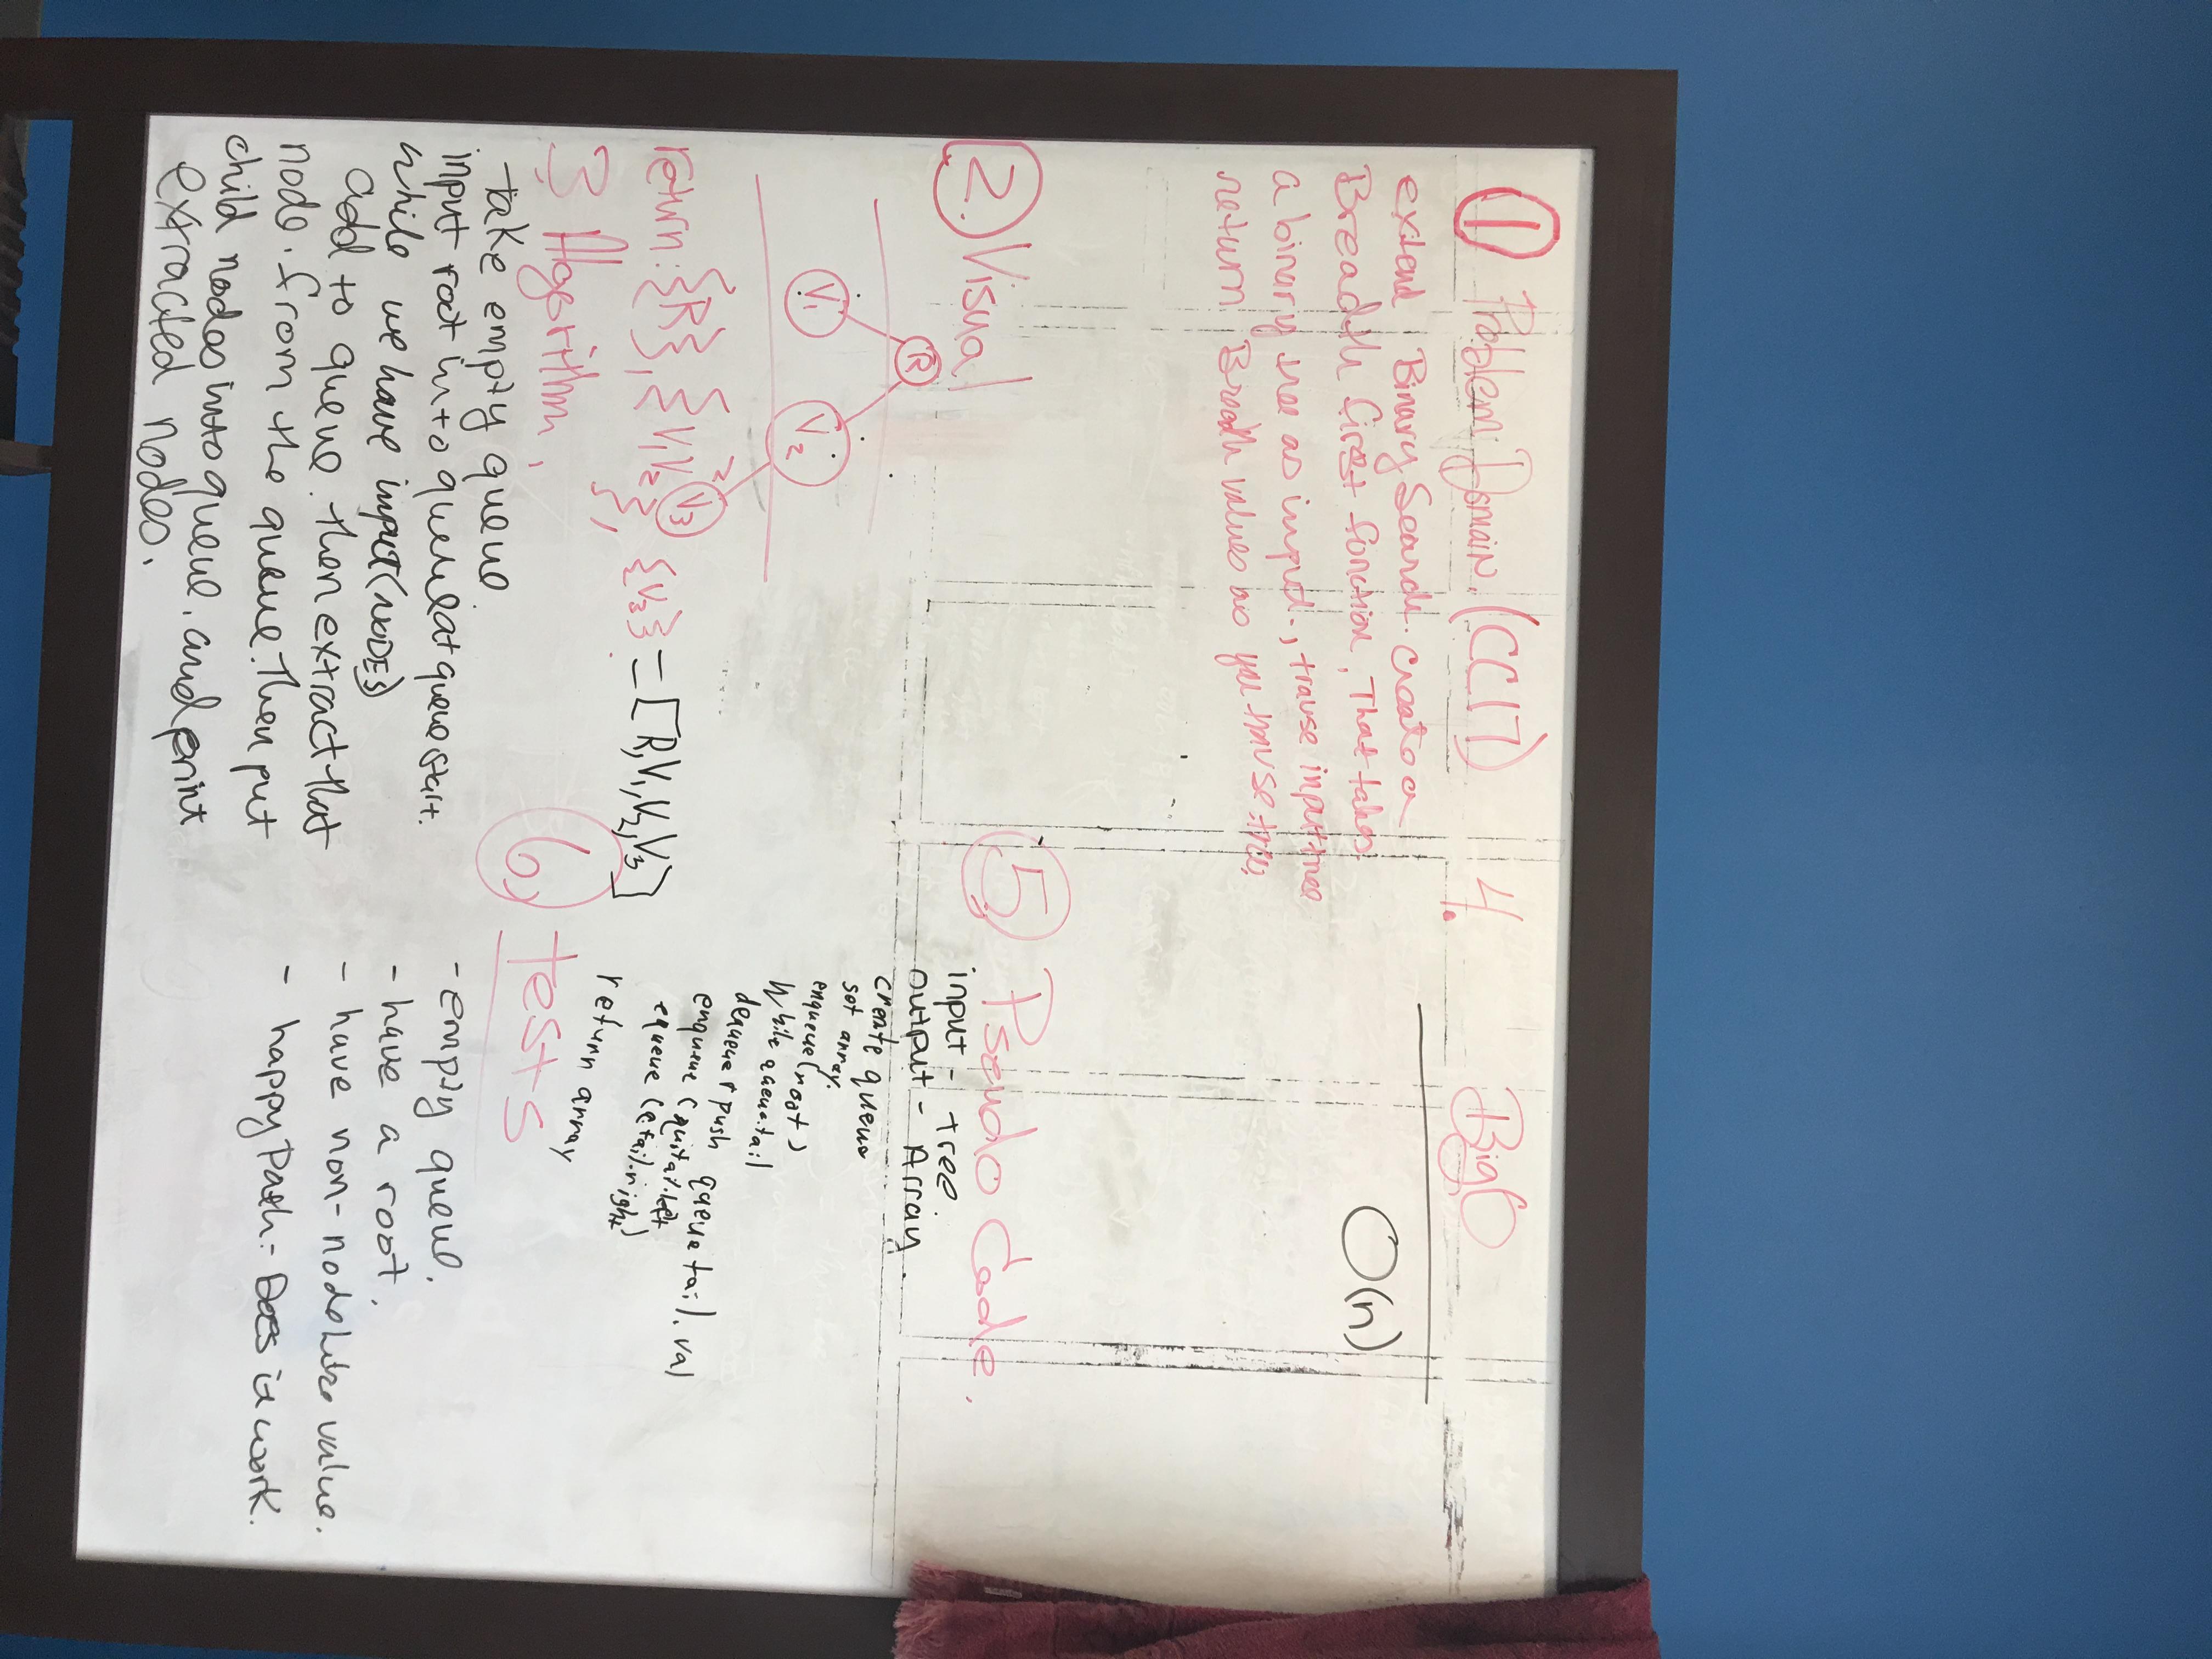 ① Problem Domain. (CC17)
extend Binary Search. Create a
Breadth First function, That takes
a binary tree as input., travse input tree
return Breadth values as you travse tree,
2.) Visual
R
V1 V2
V3
return: {R}, {V1V2}, {V3} = [R,V1,V2,V3]
3 Algorithm,
- take empty queue.
input root into queue at queue start.
while we have input (NODES)
add to queue. then extract that
node. from the queue. then put
child nodes into queue. and print
extracted nodes.
4. Big O
O(n)
5, Pseudo Code.
input - tree.
output - Array.
create queue
set array.
enqueue(root)
while queue.tail
dequeue push queue tail.val
enqueue (tail.left
equeue (tail.right)
return array
6, tests
- empty queue.
- have a root.
- have non-node like value.
- happy Path: Does it work.